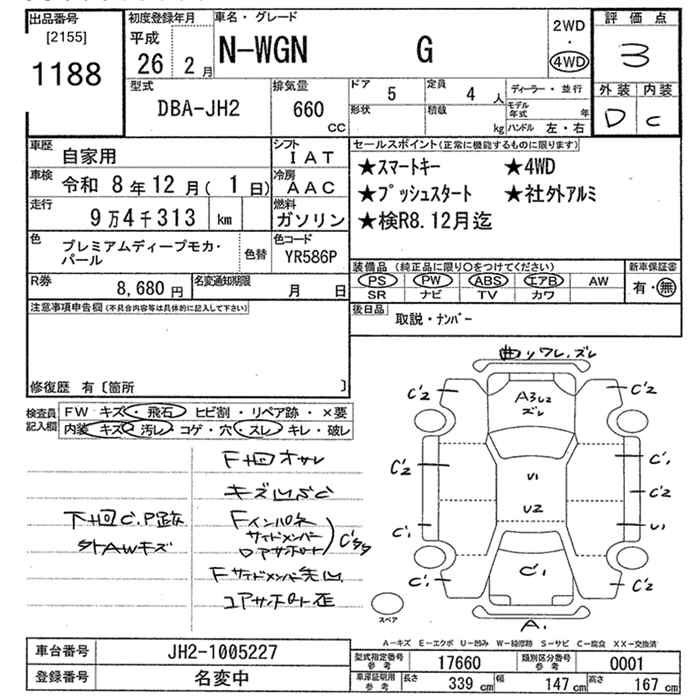 出品番号
[2155]
1188
初度登録年月
平成
26 2月
車名・グレード
N-WGN G
2WD
・
4WD
評価点
3
外装 内装
D C
型式
DBA-JH2
排気量
660
CC
ドア 5
定員 4 人
形状
積載 kg
ディーラー・並行
モデル年式 年
ハンドル 左・右
車歴 自家用
シフト IAT
車検 令和 8年12月( 1日)
冷房 AAC
走行 9万4千313 km
燃料 ガソリン
色 プレミアムディープモカ・パール
色替
色コード YR586P
R券 8,680円
名変通知期限 月 日
セールスポイント(正常に機能するものに限ります)
★スマートキー ★4WD
★プッシュスタート ★社外アルミ
★検R8.12月迄
装備品 (純正品に限り○をつけてください)
PS PW ABS エアB AW
SR ナビ TV カワ
新車保証書
有・無
後日品 取説・ナンバー
注意事項申告欄(不具合内容等は具体的に記入して下さい)
修復歴 有〔箇所 〕
検査員記入欄
FW キズ・飛石・ヒビ割・リペア跡・×要
内装 キズ・汚レ・コゲ・穴・スレ・キレ・破レ
下廻C.P跡
外AWキズ
F廻オサレ
Fインパネ
サイドメンバー
曲リワレ.ズレ
ズレ
C'2 C'2
C'2
C'1
C'2
U1
C'1
C'1 C'2
U1
U2
C'1
A1
スペア
A-キズ E-エクボ U-凹み W-補修跡 S-サビ C-腐食 XX-交換済
車台番号 JH2-1005227
登録番号 名変中
型式指定番号 参考 17660
類別区分番号 参考 0001
車庫証明用 参考
長さ 339 cm
幅 147 cm
高さ 167 cm